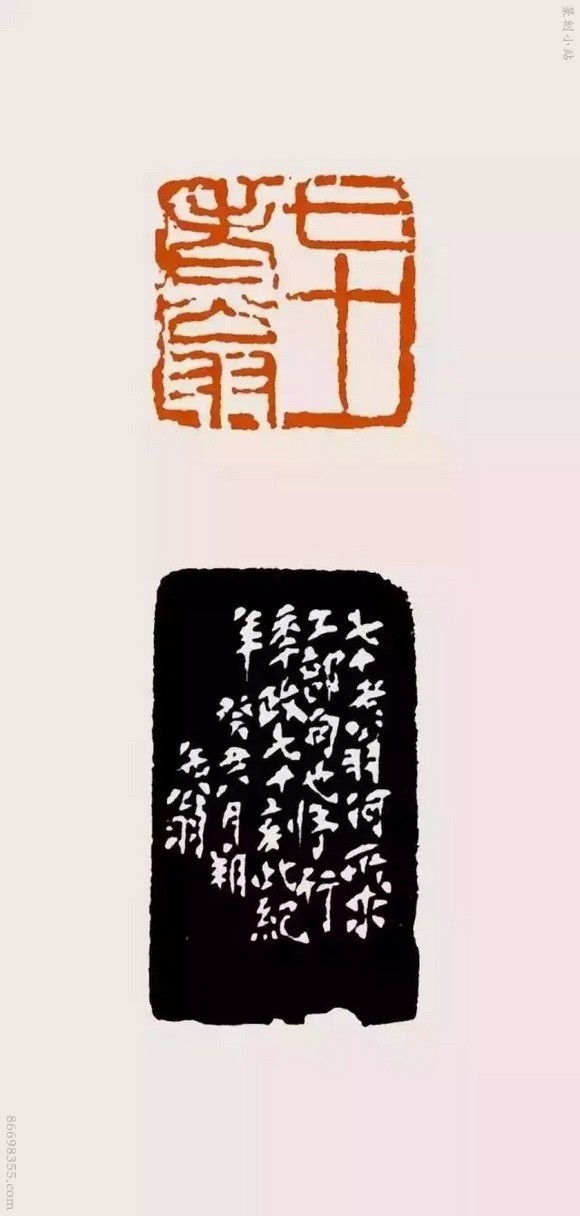 篆刻小站
七十
老翁
七十老翁何所求
工部句也予行
秊政七十刻此紀
年 癸丑八月朔
缶翁
86698355.com